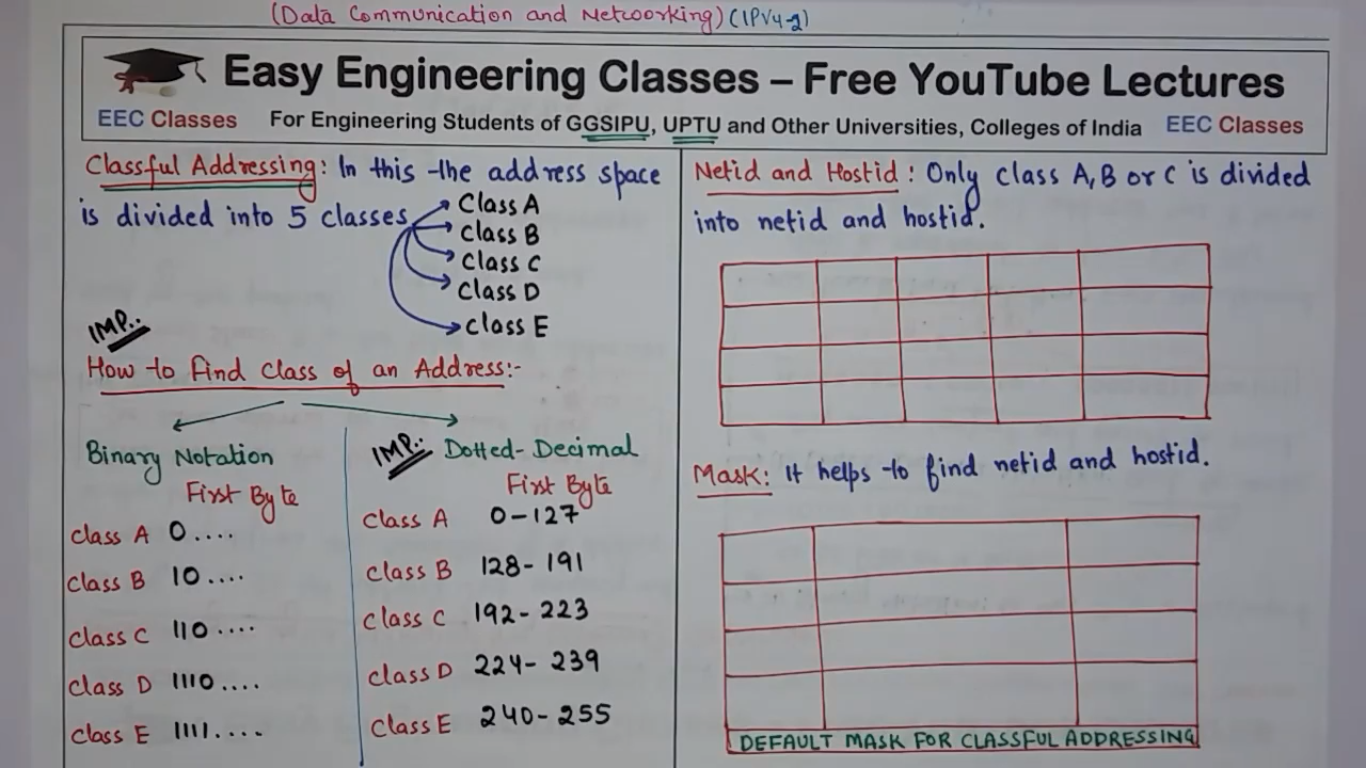 (Data Communication and Networking) (IPV4-2)
Easy Engineering Classes – Free YouTube Lectures
EEC Classes For Engineering Students of GGSIPU, UPTU and Other Universities, Colleges of India EEC Classes
Classful Addressing: In this the address space
is divided into 5 classes
Class A
Class B
Class C
Class D
Class E
IMP.:
How to find class of an Address:-
Binary Notation
First Byte
Class A 0....
Class B 10....
Class C 110....
Class D 1110....
Class E 1111....
IMP.: Dotted-Decimal
First Byte
Class A 0-127
Class B 128-191
Class C 192-223
Class D 224-239
Class E 240-255
Netid and Hostid: Only class A, B or C is divided
into netid and hostid.
Mask: It helps to find netid and hostid.
DEFAULT MASK FOR CLASSFUL ADDRESSING